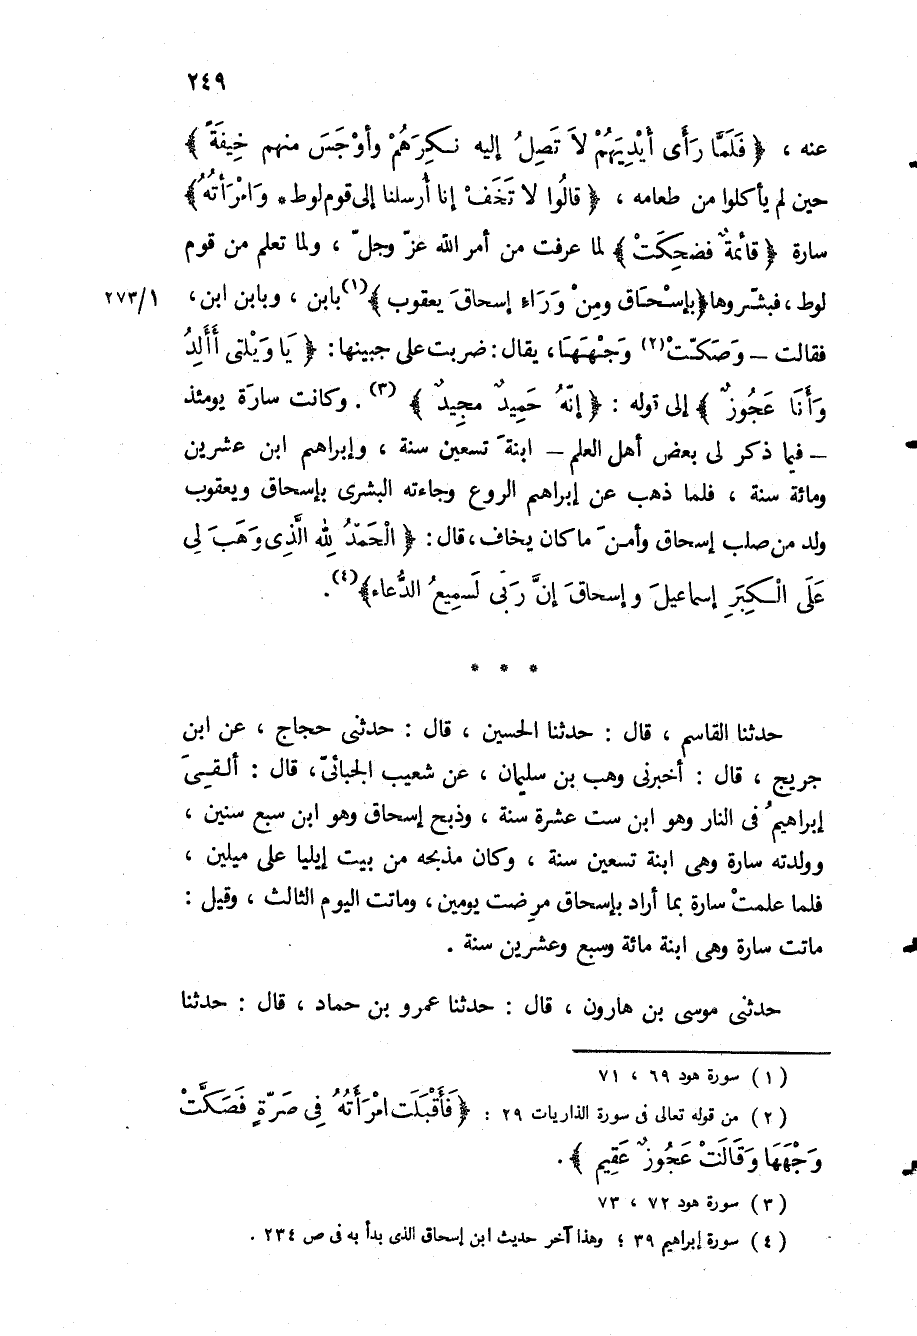 ٢٤٩
عنه ، ﴿ فَلَمَّا رَأَى أَيْدِيَهُمْ لاَ تَصِلُ إليه نَكِرَهُمْ وأوْجَسَ منهم خِيفَةً ﴾
حين لم يأكلوا من طعامه ، ﴿ قالُوا لا تَخَفْ إنا أُرسلنا إلى قوم لوط * وَامْرَأَتُهُ ﴾
سارة ﴿ قائمةٌ فضحِكَتْ ﴾ لما عرفت من أمر الله عزّ وجلّ ، ولما تعلم من قوم
لوط ، فبشّروها ﴿ بإسْحَاق ومِنْ وَرَاءِ إسحاقَ يعقوب ﴾(١) بابن ، وبابن ابن ، ٢٧٣/١
فقالت – وَصَكّتْ(٢) وَجْهَهَا ، يقال : ضربت على جبينها : ﴿ يَا وَيْلتى أَأَلِدُ
وَأَنَا عَجُوزٌ ﴾ إلى قوله : ﴿ إنّهُ حَمِيدٌ مجِيدٌ ﴾ (٣) . وكانت سارَة يومئذ
– فيما ذكر لى بعض أهل العلم – ابنةَ تسعين سنة ، وإبراهيم ابن عشرين
ومائة سنة ، فلما ذهب عن إبراهيم الروع وجاءته البشرى بإسحاق ويعقوب
ولد من صلب إسحاق وأمنَ ما كان يخاف ، قال : ﴿ الْحَمْدُ لِلهِ الَّذِى وَهَبَ لِى
عَلَى الْكِبَرِ إسماعيلَ وإسحاقَ إنَّ رَبّى لَسَمِيعُ الدُّعاء ﴾(٤) .
* * *
حدثنا القاسم ، قال : حدثنا الحسين ، قال : حدثنى حجاج ، عن ابن
جريج ، قال : أخبرنى وهب بن سليمان ، عن شعيب الجبائىّ ، قال : ألقِىَ
إبراهيمُ فى النار وهو ابن ست عشرة سنة ، وذبح إسحاق وهو ابن سبع سنين ،
وولدته سارة وهى ابنة تسعين سنة ، وكان مذبحه من بيت إيليا على ميلين ،
فلما علمتْ سارة بما أراد بإسحاق مرِضت يومين ، وماتت اليوم الثالث ، وقيل :
ماتت سارة وهى ابنة مائة وسبع وعشرين سنة .
حدثنى موسى بن هارون ، قال : حدثنا عمرو بن حماد ، قال : حدثنا
( ١ ) سورة هود ٦٩ ، ٧١
( ٢ ) من قوله تعالى فى سورة الذاريات ٢٩ : ﴿ فَأَقْبَلَت امْرَأَتُهُ فِى صَرّةٍ فَصَكَّتْ
وَجْهَهَا وَقَالَتْ عَجُوزٌ عَقِيم ﴾ .
( ٣ ) سورة هود ٧٢ ، ٧٣
( ٤ ) سورة إبراهيم ٣٩ ؛ وهذا آخر حديث ابن إسحاق الذى بدأ به فى ص ٢٣٤ .